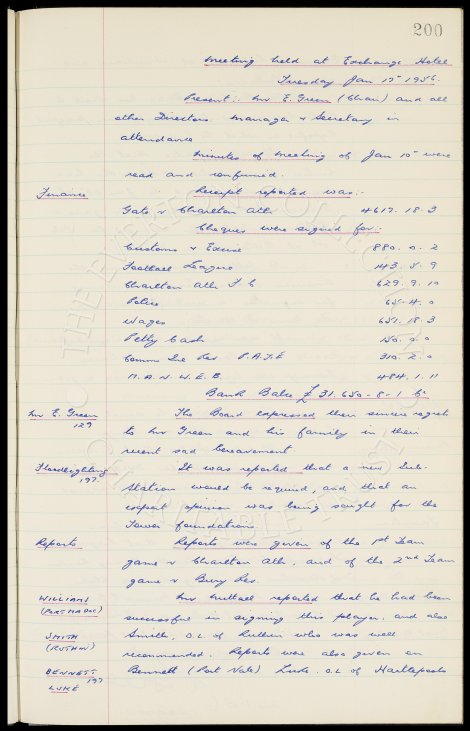 200
Meeting held at Exchange Hotel
Tuesday Jan 17th 1956.
Present:- Mr E. Green (Chair) and all
other Directors Manager & Secretary in
attendance
Minutes of meeting of Jan 10th were
read and confirmed.
Finance Receipt reported was:-
Gate v Charlton Ath 4617. 18. 3
Cheques were signed for:-
Customs & Excise 880. 0. 2
Football League 143. 8. 9
Charlton Ath F C 629. 9. 10
Police 65. 4. 0
Wages 651. 18. 3
Petty Cash 150. 0. 0
Comm Inl Rev P.A.Y.E 310. 2. 0
M.A.N.W.E.B. 484. 1. 11
Bank Balce £31.650-8-1
Mr E. Green The Board expressed their sincere regret
129 to Mr Green and his family in their
recent sad bereavement.
Floodlighting It was reported that a new Sub-
197 Station would be required, and that an
expert opinion was being sought for the
Tower foundations.
Reports Reports were given of the 1st Team
game v Charlton Ath, and of the 2nd Team
game v Bury Res.
WILLIAMS Mr Nuttall reported that he had been
(PORTMADOC) successful in signing this player, and also
SMITH Smith, O.L. of Ruthin who was well
(RUTHIN) recommended. Reports were also given on
BENNETT Bennett (Port Vale) Luke, O.L of Hartlepools
197
LUKE
THE EVERTON COLLECTION
CHARITABLE TRUST